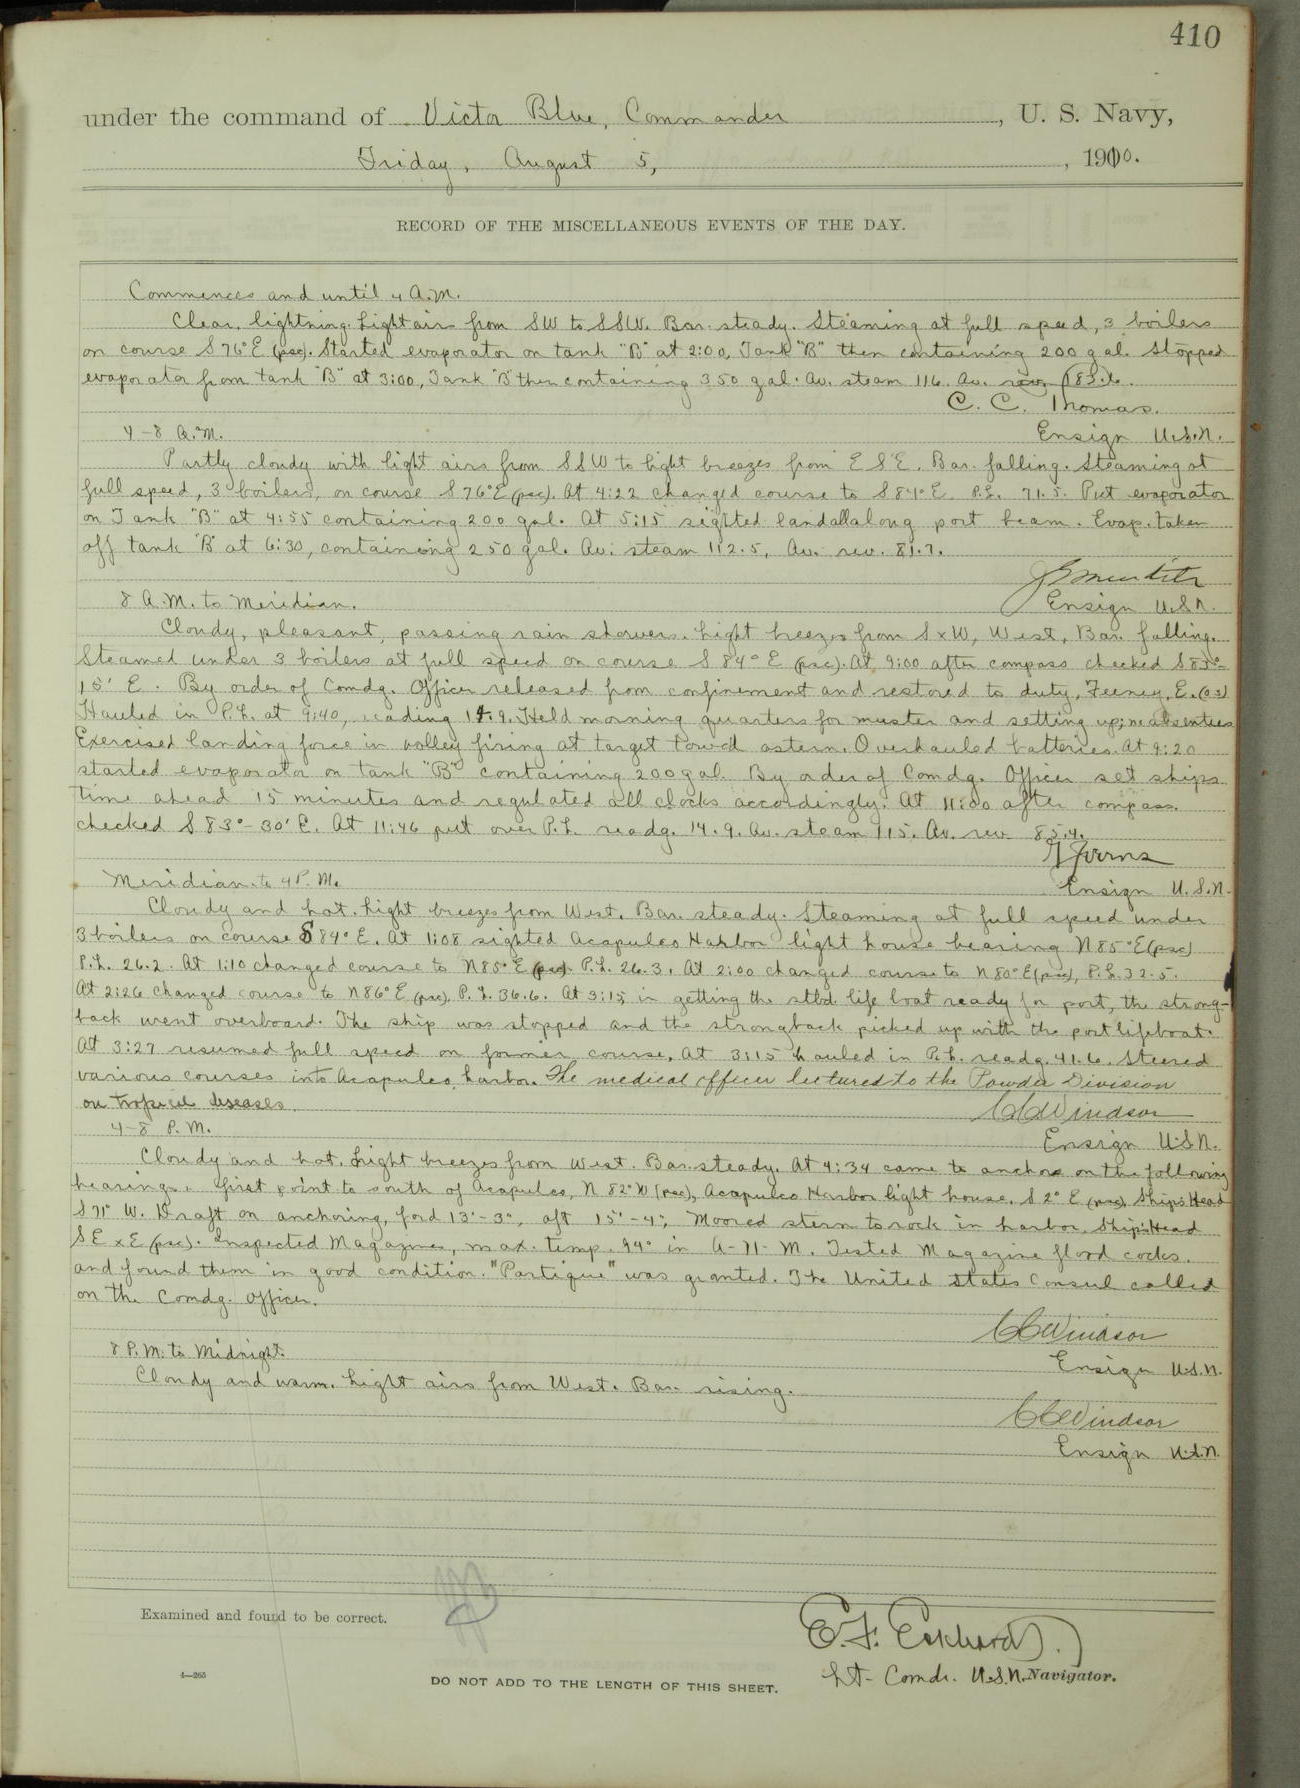 410
under the command of Victor Blue, Commander, U. S. Navy,
Friday, August 5, 1910.
RECORD OF THE MISCELLANEOUS EVENTS OF THE DAY.
Commences and until 4 A.M.
Clear, lightning. Light airs from SW to SSW. Bar. steady. Steaming at full speed, 3 boilers
on course S 76° E (psc). Started evaporator on tank "B" at 2:00, Tank "B" then containing 200 gal. Stopped
evaporator from tank "B" at 3:00, Tank "B" then containing 350 gal. Av. steam 116. Av. rev.
C. C. Thomas.
4-8 A.M.
Ensign U.S.N.
Partly cloudy with light airs from SSW to light breezes from ESE. Bar. falling. Steaming at
full speed, 3 boilers, on course S 76° E (psc). At 4:22 changed course to S 84° E. P.L. 71.5. Put evaporator
on Tank "B" at 4:55 containing 200 gal. At 5:15 sighted land all along port beam. Evap. taken
off tank "B" at 6:30, containing 250 gal. Av. steam 112.5, Av. rev. 81.7.
8 A.M. to Meridian.
Ensign U.S.N.
Cloudy, pleasant, passing rain showers. Light breezes from SxW, West, Bar. falling.
Steamed under 3 boilers at full speed on course S 84° E (psc). At 9:00 after compass checked S 83°-
15' E. By order of Comdg. Officer released from confinement and restored to duty, Feeney, E. (O.S.)
Hauled in P.L. at 9:40, reading 14.9. Held morning quarters for muster and setting up; no absentees
Exercised landing force in volley firing at target towed astern. Overhauled batteries. At 9:20
started evaporator on tank "B" containing 200 gal. By order of Comdg. Officer set ships
time ahead 15 minutes and regulated all clocks accordingly. At 11:00 after compass
checked S 83°-30' E. At 11:46 put over P.L. readg. 14.9. Av. steam 115. Av. rev. 85.4.
Meridian to 4 P.M.
Ensign U.S.N.
Cloudy and hot. Light breezes from West. Bar. steady. Steaming at full speed under
3 boilers on course S 84° E. At 1:08 sighted Acapulco Harbor light house bearing N 85° E (psc)
P.L. 26.2. At 1:10 changed course to N 85° E (psc). P.L. 26.3. At 2:00 changed course to N 80° E (psc), P.L. 32.5.
At 2:26 changed course to N 86° E (psc), P.L. 36.6. At 3:15 in getting the stbd. life boat ready for port, the strong-
back went overboard. The ship was stopped and the strongback picked up with the port lifeboat.
At 3:27 resumed full speed on former course. At 3:15 hauled in P.L. readg. 41.6. Steered
various courses into Acapulco harbor. The medical officer lectured to the Powder Division
on tropical diseases.
CC Windsor
4-8 P.M.
Ensign U.S.N.
Cloudy and hot. Light breezes from West. Bar. steady. At 4:34 came to anchor on the following
bearings. first point to south of Acapulco, N 82° W (psc), Acapulco Harbor light house, S 2° E (psc). Ship's Head
S 71° W. Draft on anchoring, ford 13'-3", aft 15'-4"; Moored stern to rock in harbor. Ship's Head
SExE (psc). Inspected Magazines, max. temp. 94° in A-71-M. Tested Magazine flood cocks.
and found them in good condition. "Partique" was granted. The United States Consul called
on the Comdg. Officer.
CC Windsor
8 P.M. to Midnight.
Ensign U.S.N.
Cloudy and warm. Light airs from West. Bar. rising.
CC Windsor
Ensign U.S.N.
Examined and found to be correct.
E. F. Eckhardt.
Lt-Comdr. U.S.N. Navigator.
4—265
DO NOT ADD TO THE LENGTH OF THIS SHEET.